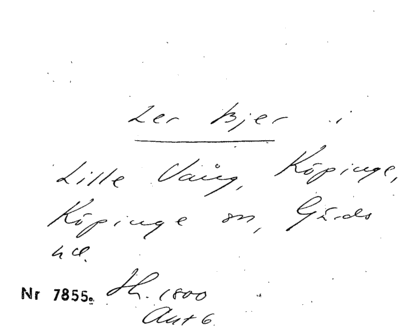 Ler Bjer i
Lille Vång, Köpinge,
Köpinge sn, Gärds
hd.
Nr 7855. Jh. 1800
Ant 6